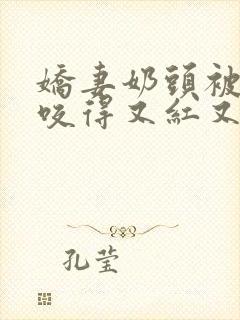 嬌妻奶頭被
咬得又紅又
孔莹